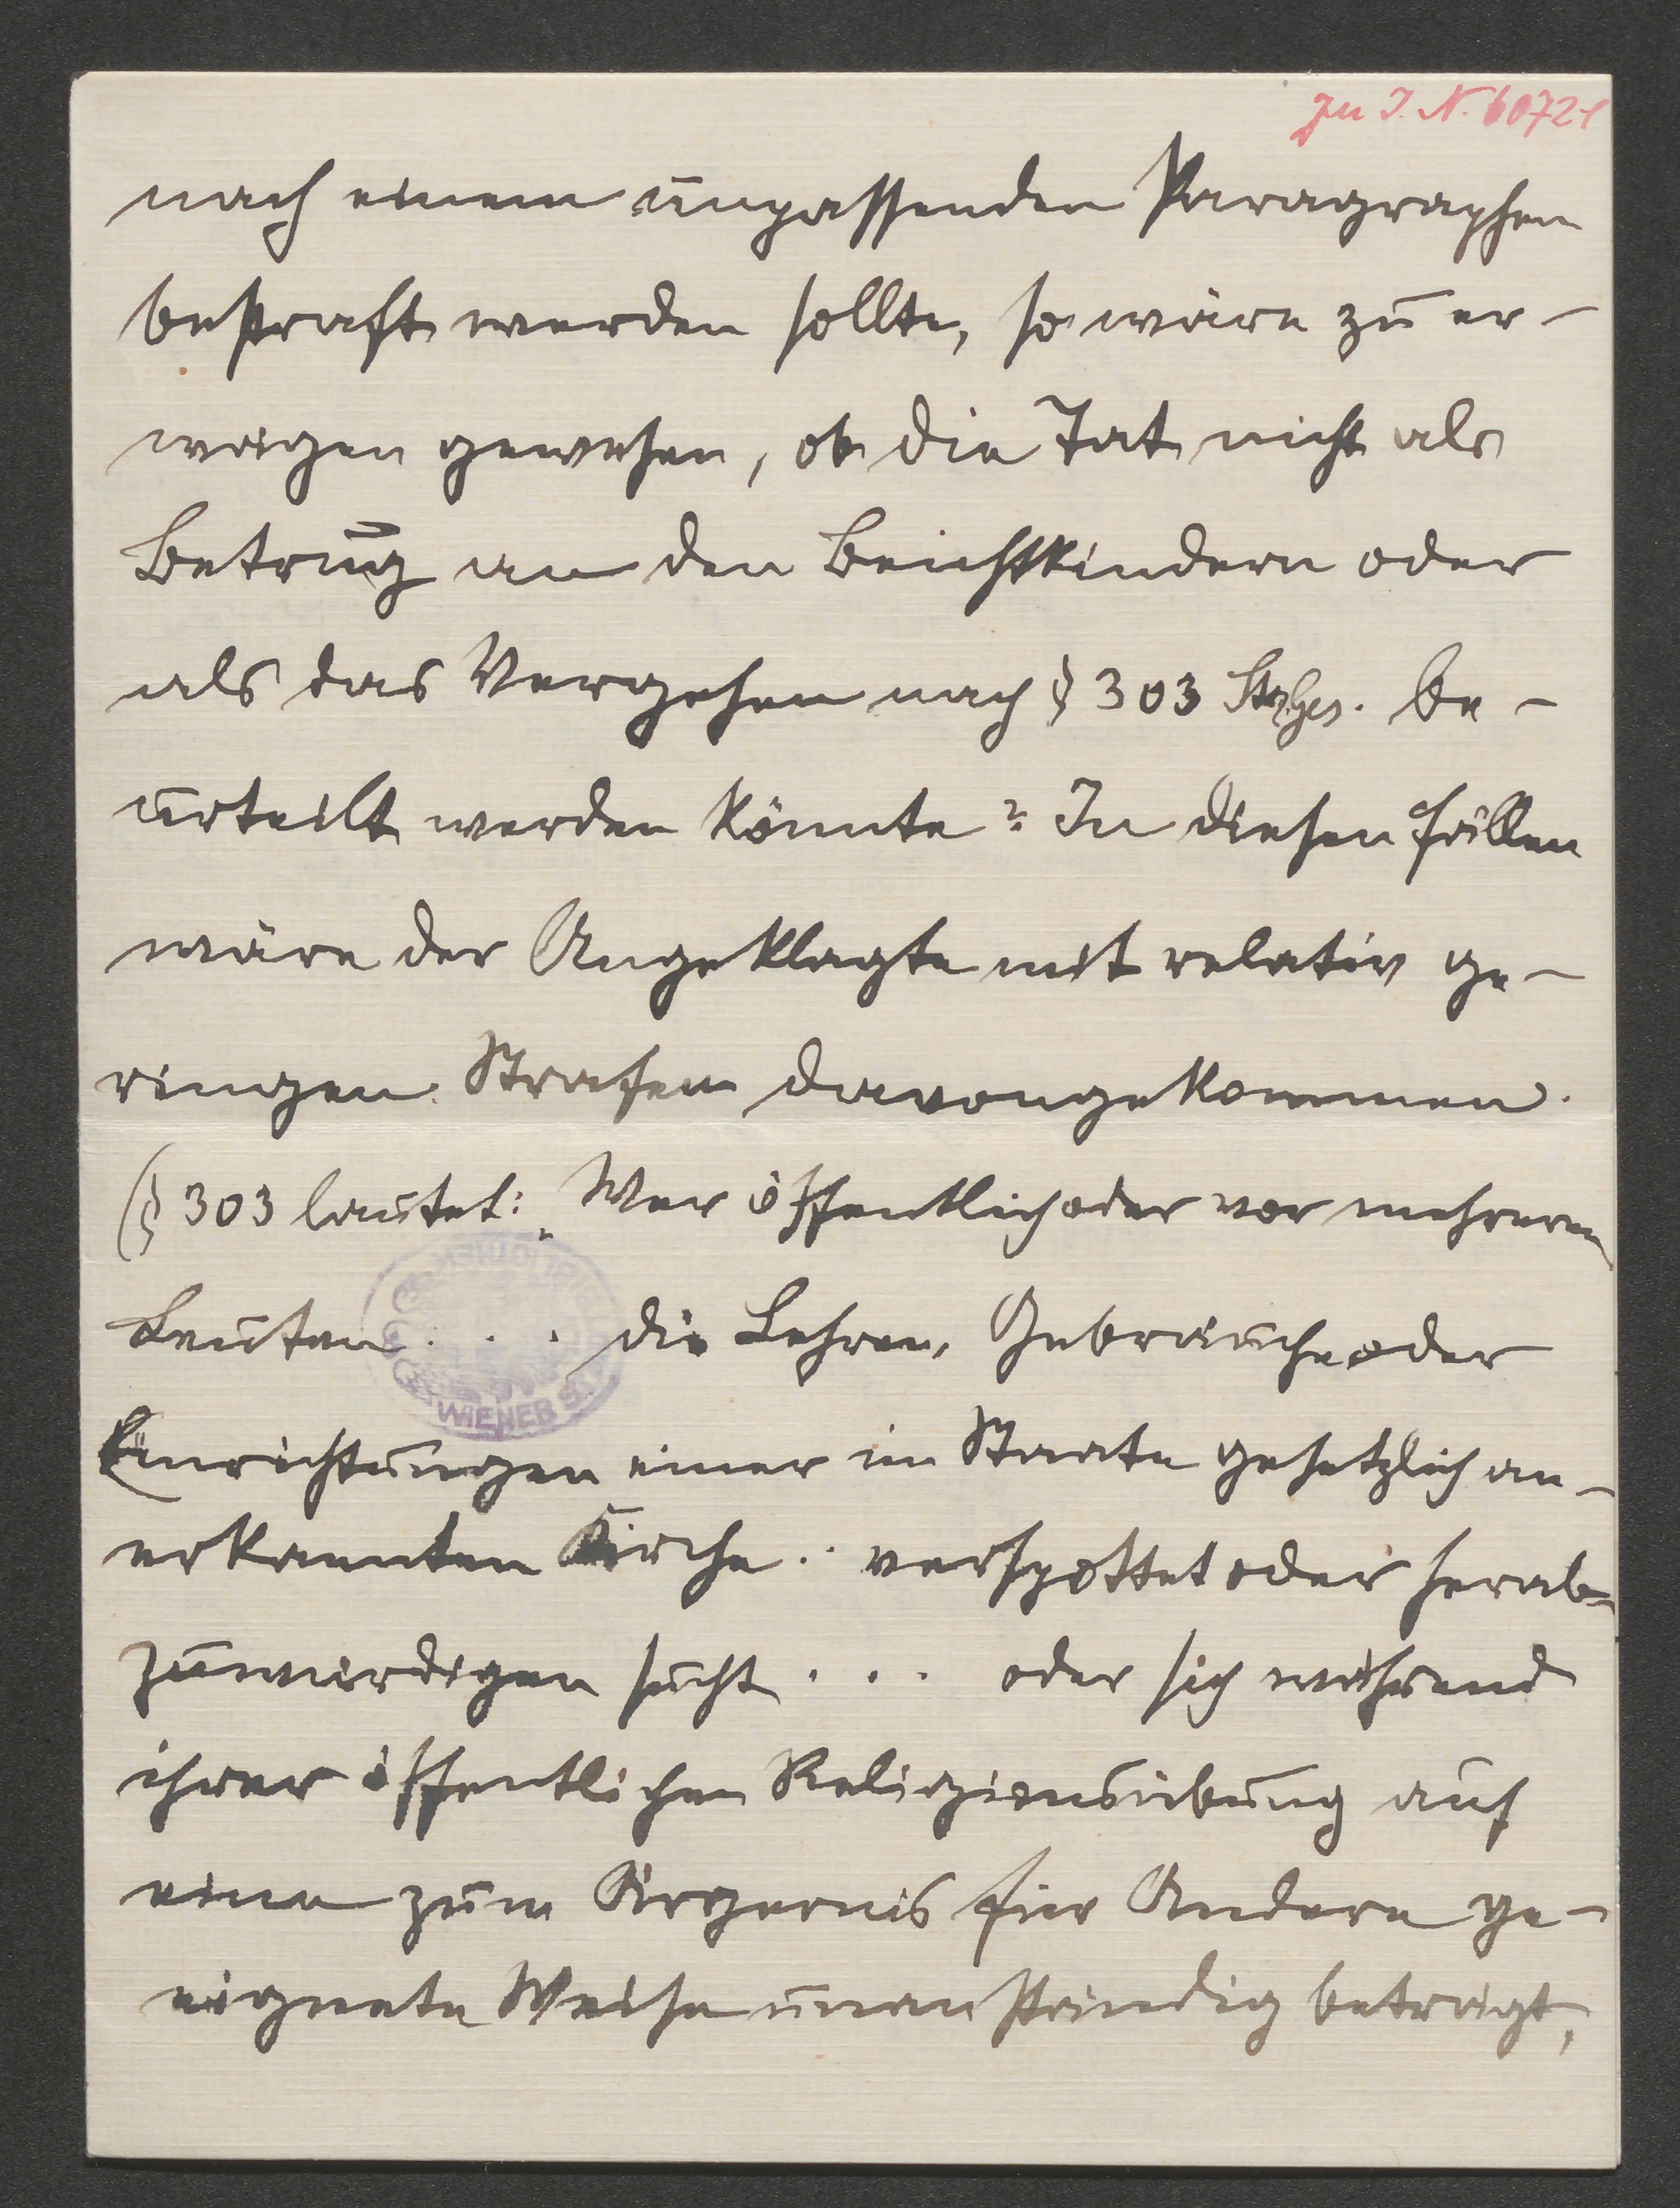 zu I. N. 60721
nach einem unpassenden Paragraphen
bestraft werden sollte, so wäre zu er-
wägen gewesen, ob die Tat nicht als
Betrug an den Beichtkindern oder
als das Vergehen nach § 303 StrGes. be-
urteilt werden könnte? In diesen Fällen
wäre der Angeklagte mit relativ ge-
ringen Strafen davongekommen.
(§ 303 lautet: „Wer öffentlich oder vor mehreren
Leuten . . . die Lehren, Gebräuche oder
Einrichtungen einer im Staate gesetzlich an-
erkannten Kirche . . verspottet oder herab-
zuwürdigen sucht . . . oder sich während
ihrer öffentlichen Religionsübung auf
eine zum Ärgernis für Andere ge-
eignete Weise unanständig beträgt,
WIENER